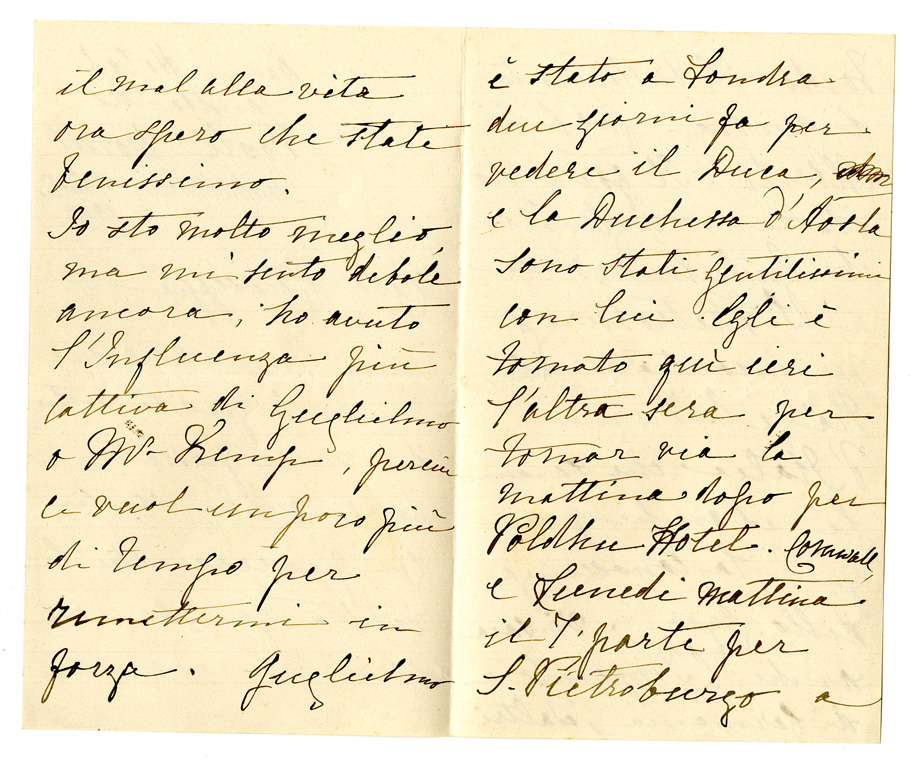 il mal alla vita
ora spero che state
benissimo.
Io sto molto meglio,
ma mi sento debole
ancora, ho avuto
l'Influenza più
cattiva di Guglielmo
o Mr Kemp, perciò
ci vuol un poco più
di tempo per
rimettermi in
forza. Guglielmo
è stato a Londra
due giorni fa per
vedere il Duca,
e la Duchessa d'Aosta
sono stati gentilissimi
con lui. Egli è
tornato quì ieri
l'altra sera per
tornar via la
mattina dopo per
Poldhu Hotel. Cornwall,
e Lunedi mattina
il 7. parte per
S. Pietroburgo a